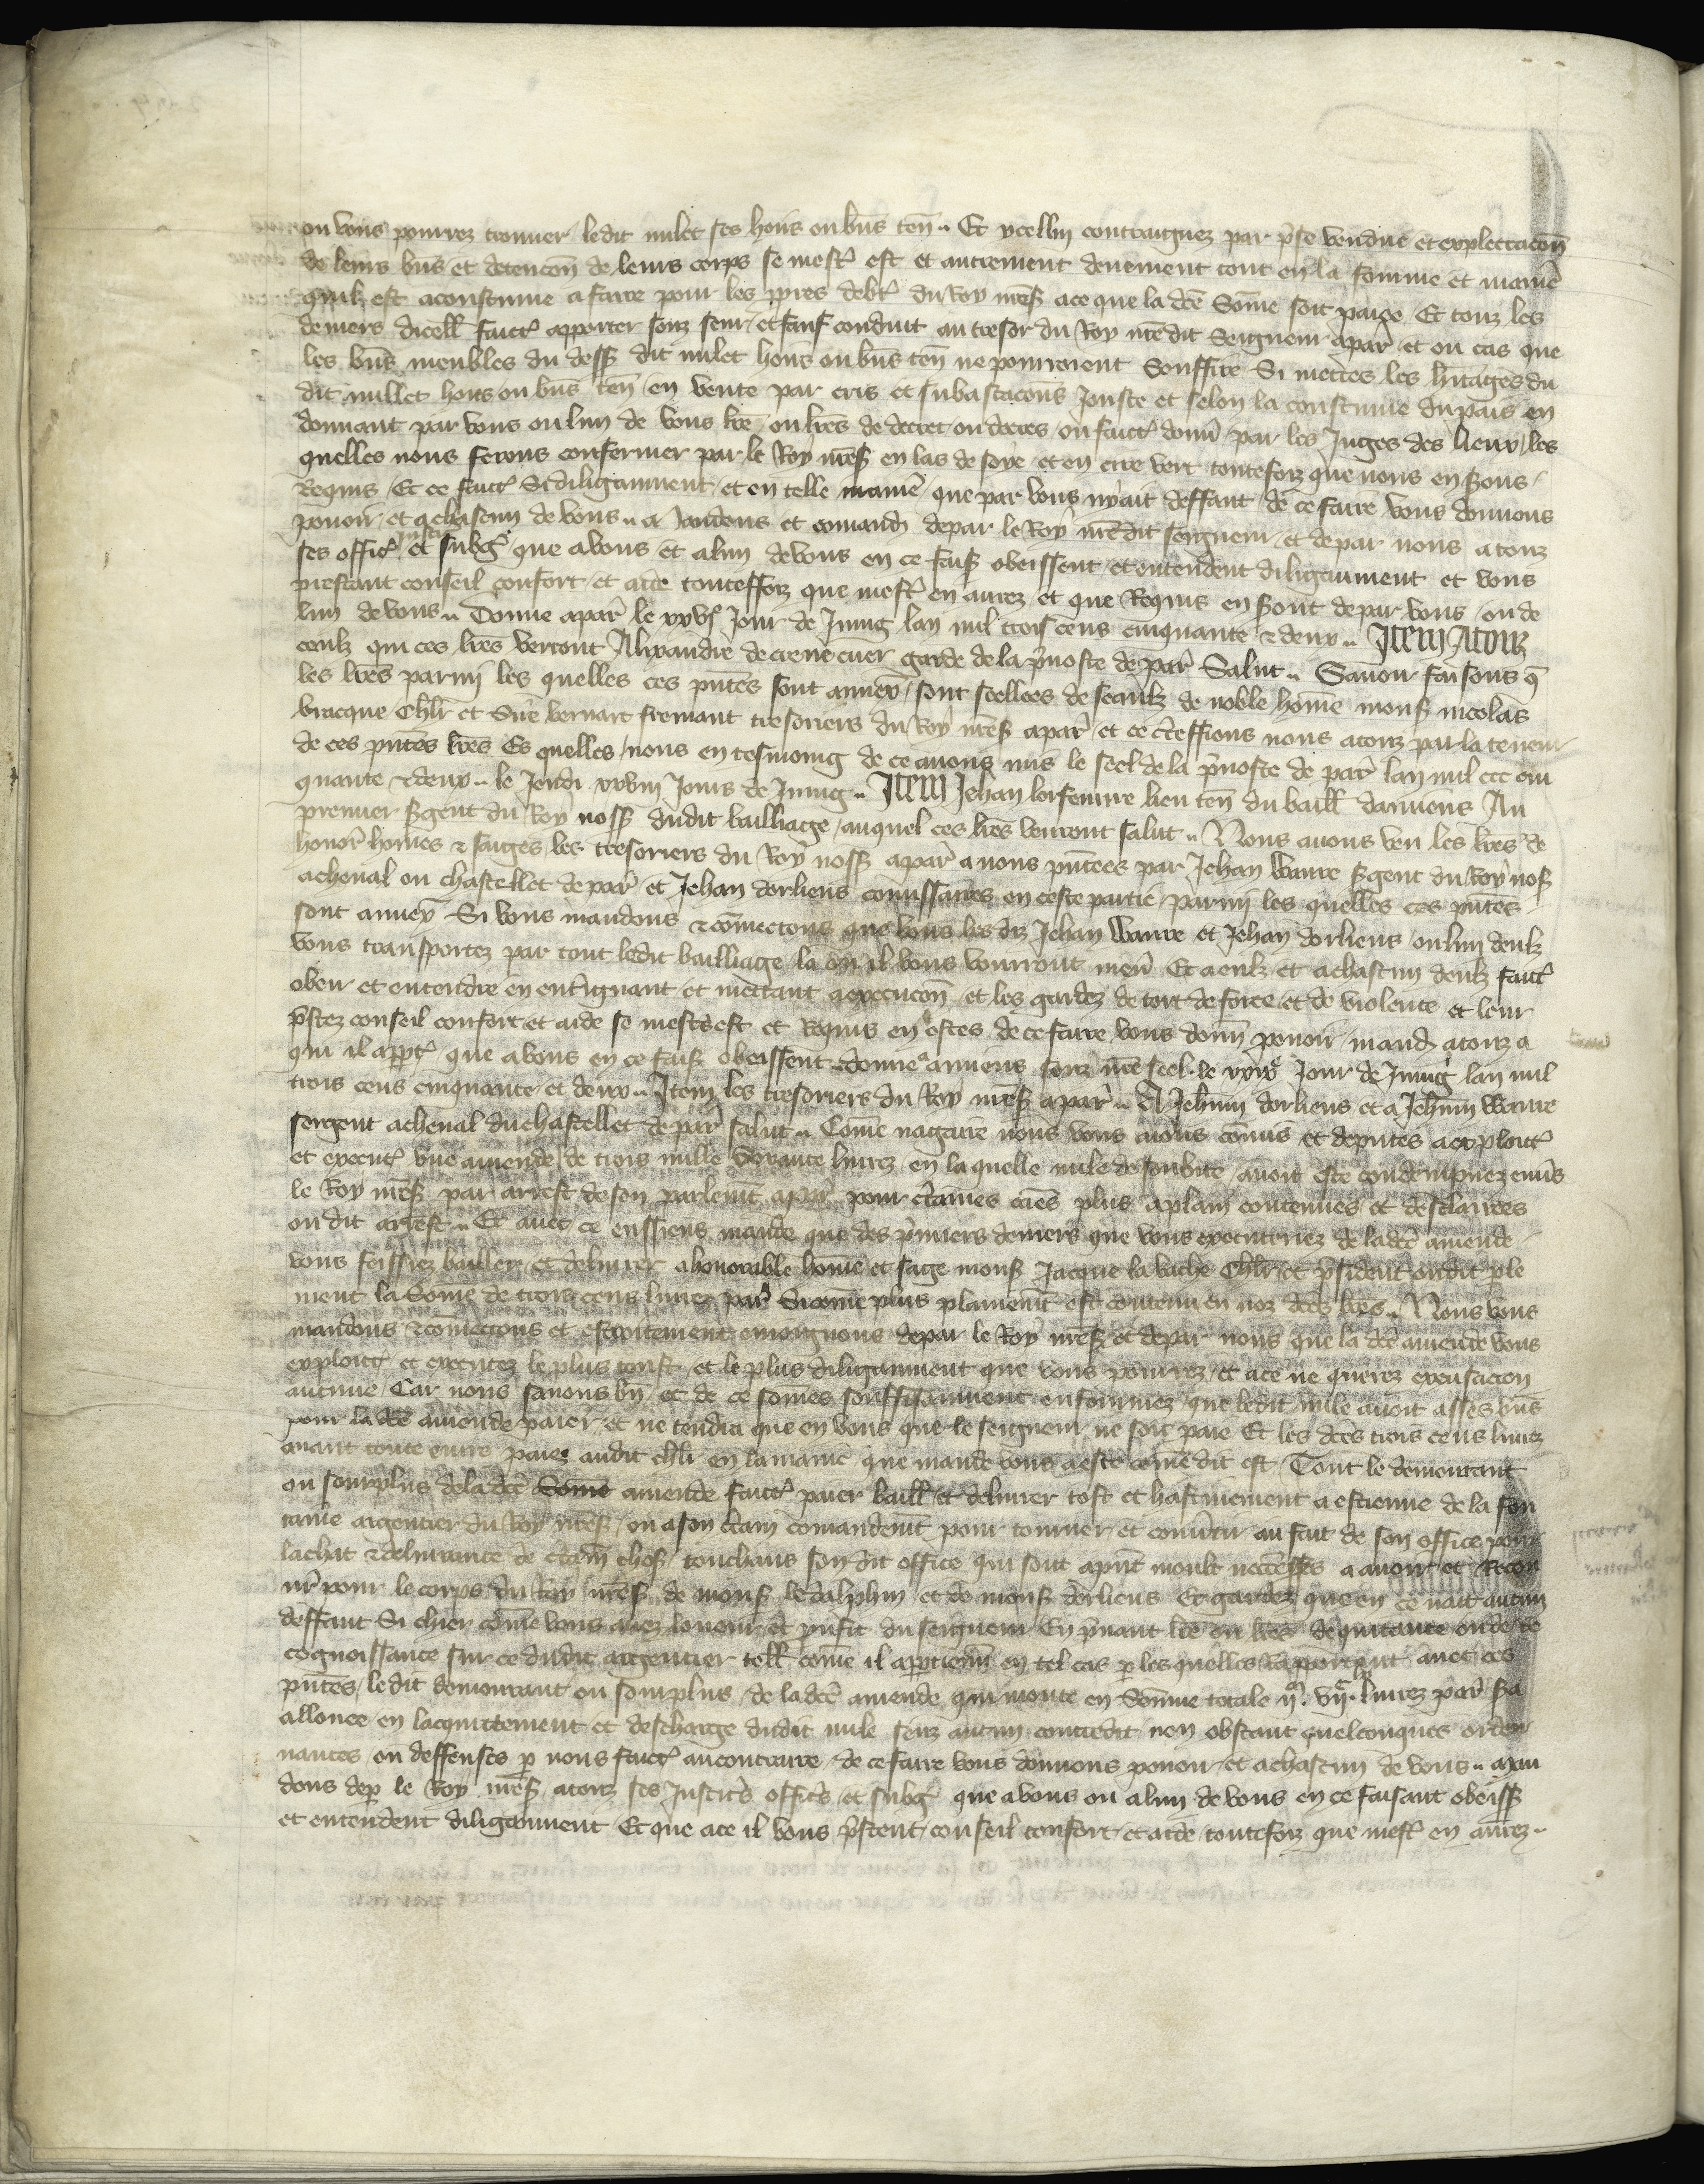 ou vous pourrez trouver ledit milet ses hoirs ou bn̄s ten̄ .. Et ycellui contraignez par p̄se vendue et explectacōn
de leurs bn̄s et detencōn de leurs corps se mest᷑ est et autrement deuement tout en la fourme et manie᷑
quilz est acoustume a faire pour les p̄pres debt᷑ du Roy nr̄eß ace que la dc̄e Som̄e soit paiee Et touz les
deniers dicell̄ faict᷑ apporter souz seur et sauf conduit au tresor du Roy nr̄edit Seigneur apar᷑ et ou cas que
les bn̄s meubles du dess̄ dit milet hoirs ou bn̄s ten̄ ne pourroient Souffire Si mectes les h̄itages du
dit millet hoirs ou bn̄s ten̄ en vente par cris et subastacōns Jouste et selon la coustume du pais en
donnant par vous ou lun de vous lr̄e ou lr̄es de decret ou decres ou faict᷑ donn̄ par les Juges des lieux les
quelles nous ferons confermer par le Roy nr̄eß en las de soye et en cire vert toutefoiz que nous en s̄ons
Requis Et ce faict᷑ Si diligamment et en telle manie᷑ que par vous ny ait deffaut de ce faire vous donnons
pouoir et achascun de vous .. a Jandens et comand̄ depar le Roy nr̄edit seigneur et depar nous atouz
ses offic᷑ justic᷑ et subg᷑ que avous et alun de vous en ce fais̄ obeissent et entendent diligaument et vous
prestant conseil confort et aide touteffoiz que mest᷑ en aurez et que Requis en s̄ont depar vous ou de
lun de vous .. Donne apar᷑ le xxvj᷑ Jour de Juing lan mil trois cens cinquante & deux .. Item Atouz
ceulz qui ces lr̄es verront Alixandre de crevecuer garde de la p̄uoste de par᷑ Salut .. Sauoir faisons q̄
les lr̄es parmi les quelles ces pn̄tes sont annex᷑ sont scellees de seaulz de noble hom̄e mons̄ nicolas
bracque Chl̄r et Sire bernart fremant tresoriers du Roy nr̄eß apar᷑ et ce c̄teffions nous atouz par la teneur
de ces pn̄tes lr̄es Es quelles nous en tesmoing de ce auons mis le seel de la p̄uoste de par᷑ lan mil ccc cin
quante & deux .. le Jeudi xxviij Jours de Juing .. Item Jehan lorfeuure lieu ten̄ du baill̄ damiens Au
premier s̄gent du Roy noss̄ dudit bailliage auquel ces lr̄es venront salut .. Nous auons veu les lr̄es de
honor᷑ hom̄es & saiges les tresoriers du Roy noss̄ apar᷑ a nous pn̄tees par Jehan Wavre s̄gent du Roy noß
acheual ou chastellet de par᷑ et Jehan dorliens com̄issaires en ceste partie parmi les quelles ces pn̄tes
sont annex᷑ Si vous mandons & com̄ectons que vous les dis Jehan Wavre et Jehan dorliens ou lun deulz
vous transportez par tout ledit bailliage la ou il vous vourront men᷑ Et a eulz et achascun deulz faict᷑
obeir et entendre en ent᷑ignant et mettant a execucōn et les gardez de tort de force et de violence et leur
p̄stez conseil confort et aide se mest᷑ est et Requis en estes de ce faire vous donn̄ pouoir mand̄ atouz a
qui il app̄t᷑ que avous en ce fais̄ obeissent .. donne a amiens souz nr̄e seel le xxix᷑ Jour de Juing lan mil
trois cens cinquante et deux .. Item les tresoriers du Roy nr̄eß apar᷑ .. A Jehan dorliens et a Jehan Wavre
sergent acheual du chastellet de par᷑ salut .. Com̄e nagaire nous vous auons com̄is et deputes a exploict᷑
et execut᷑ vne amende de trois mille livrez en laquelle mile de soubite auoit este condempnez enu̅s
le Roy nr̄eß par arrest de son parlem̄t apar᷑ pour c̄taines caūs plus aplain contenues et desclairees
ou dit arrest .. Et auec ce enssiens mande que des p̄miers deniers que vous executeriez de ladc̄e amende
vous feissiez bailler et deliurer a honorable hom̄e et sage mons̄ Jacque la vache Chl̄r et p̄sident oudit p̄le
ment la Som̄e de trois cens liurez par᷑ Sicom̄e plus plainem̄t est contenu en noz dc̄es lr̄es .. Nous vous
mandons & com̄ectons et estroitement enioignons depar le Roy nr̄eß et depar nous que la dc̄e amende vous
exploict᷑ et executez le plus tost et le plus diligamment que vous pourrez et ace ne querez excusacion
aucune Car nous sauons bn̄ et de ce som̄es souffisamment enfourmez que ledit mile auoit asses bn̄s
pour la dc̄e amende paier et ne tendra que en vous que le seigneur ne soit paie Et les dc̄es trois cens liurez
auant toute euure paiez audit chl̄r en la manie᷑ que mande vous a este com̄e dit est Tout le demourant
ou sourplus de la dc̄e Som̄e amende faict᷑ paier baill̄ et deliurer tost et hastiuement a estienne de la fon
taine argentier du Roy nr̄eß ou a son c̄tain comandem̄t pour tourner et conu̅tir au fait de son office pour
lachat & deliurance de c̄tain̄ chos̄ touchans son dit office qui sont apn̄t moult necess̄es a auoir et Recou
ur᷑ pour le corps du Roy nr̄eß de mons̄ le dalphin et de mons̄ dorliens Et gardez que en ce nait aucun
deffaut Si chier com̄e vous auez lonneur et p̄ufit du seigneur En p̄nant lr̄e ou lr̄es de quitance ou de Re
cognoissance sur ce dudit argentier tell̄ com̄e il app̄tient en tel cas p̄ les quelles Rapportant auec ces
pn̄tes ledit demourant ou sourplus de la dc̄e amende qui monte en Som̄me totale ijᵐ. vijᶜ. liurez par᷑ s̄a
allouee en lacquittement et descharge dudit mile senz aucun contredit non obstant quelconques orden
nances ou deffenses p̄ nous faict᷑ aucontraire de ce faire vous donnons pouoir et achascun de vous .. Man
dons dep̄ le Roy nr̄eß atouz ses Justic᷑s offic᷑s et subg᷑ que avous ou alun de vous en ce faisant obeiss̄
et entendent diligeument Et que ace il vous p̄stent conseil confort et aide toutefoiz que mest᷑ en aurez ..